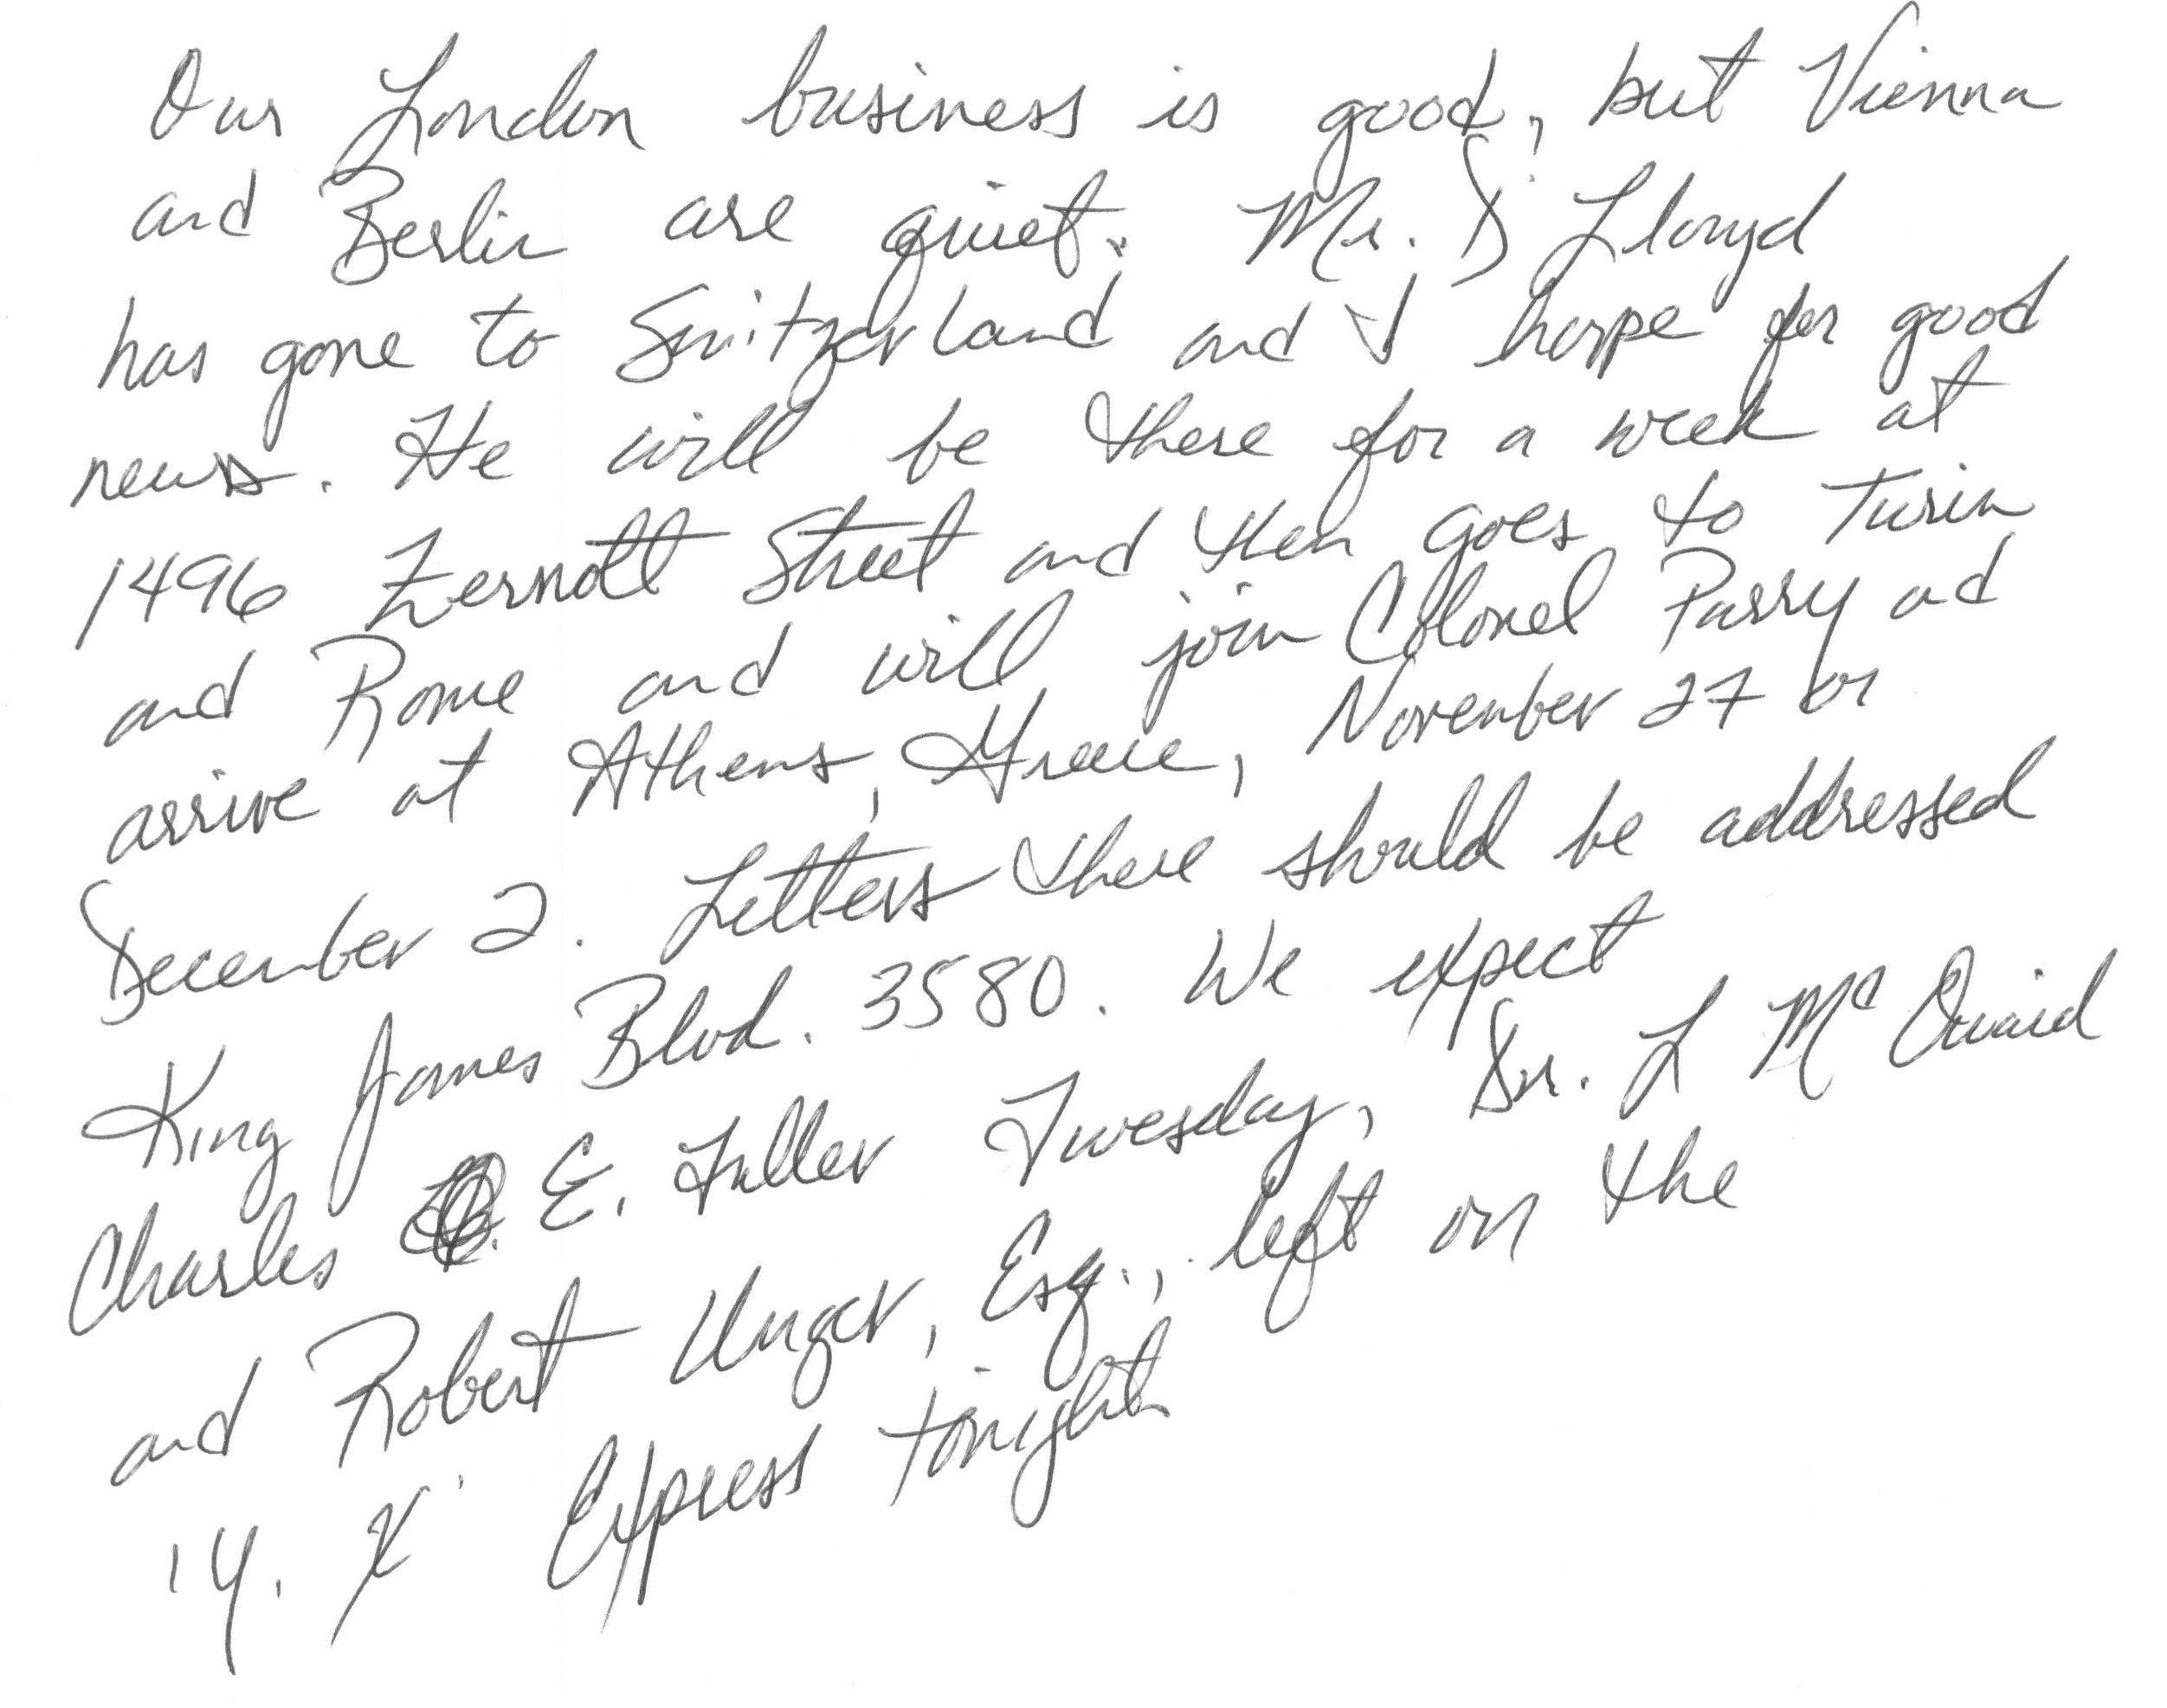 Our London business is good, but Vienna
and Berlin are quiet. Mr. D Lloyd
has gone to Switzerland and I hope for good
news. He will be there for a week at
1496 Zermott Street and then goes to Turin
and Rome and will join Colonel Parry ad
arrive at Athens, Greece, November 27 or
December 2. Letters there should be addressed
King James Blvd. 3580. We expect
Charles E. Fuller Tuesday, Dr. L Mc Quaid
and Robert Unger, Esq., left on the
'Y. X' Express tonight